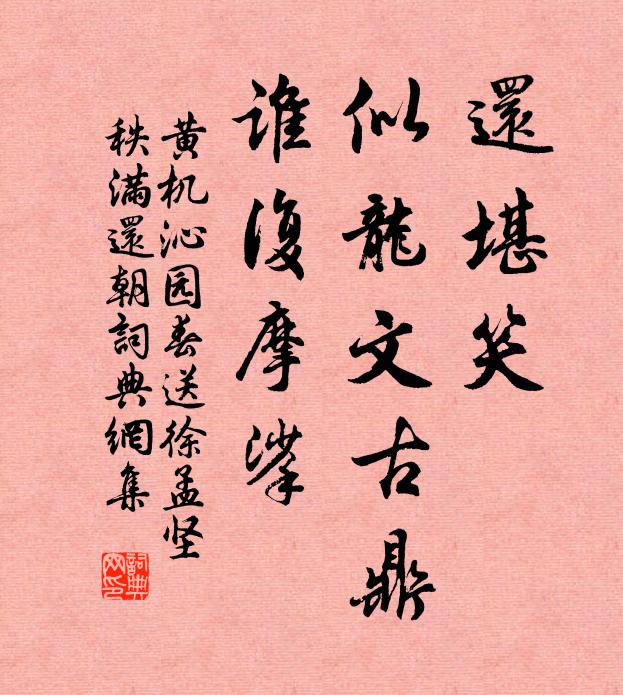 還堪笑
似龍文古鼎
誰復摩挲
黄机沁园春送徐孟坚
秩滿還朝詞典網集
詞典
网印